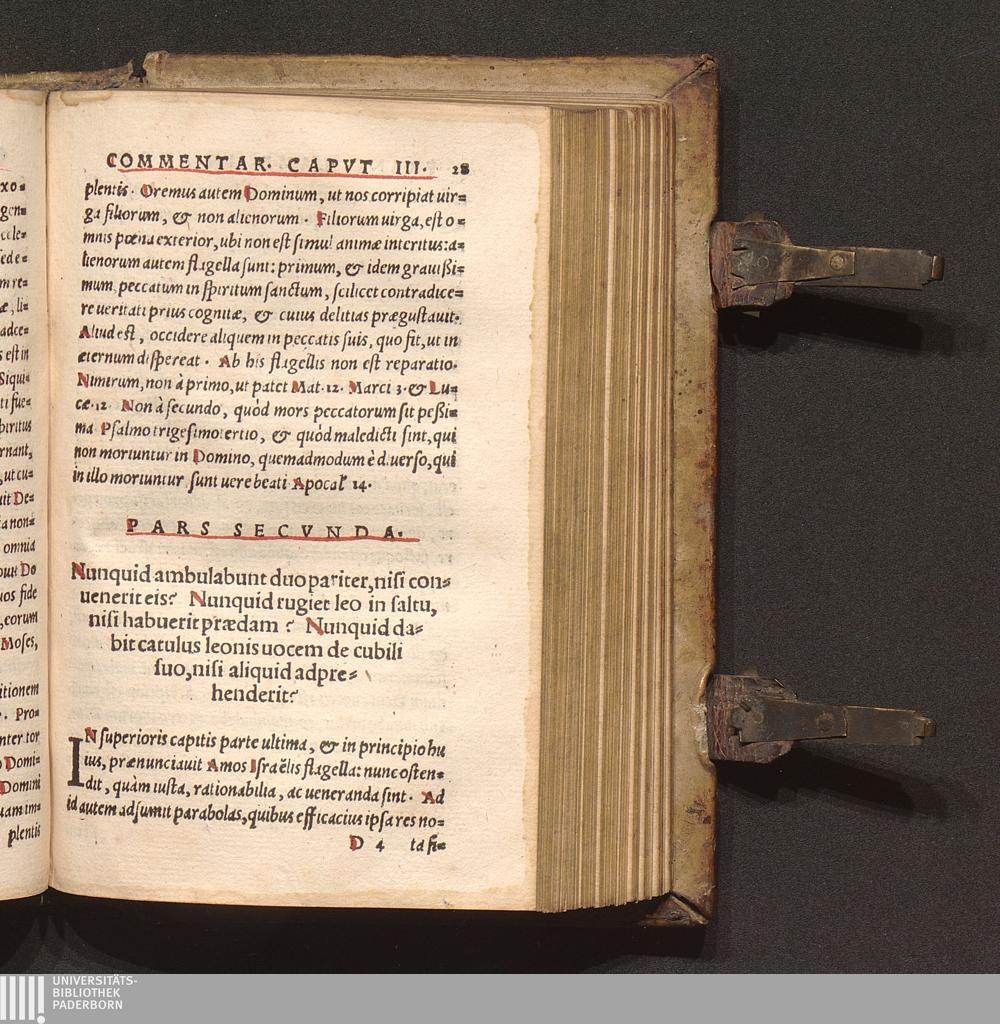 xo=
gen=
cele=
sede=
m re=
æ, li=
adce=
s est in
Siqui=
ti fue=
piritus
rnant,
, ut cu=
uit De=
ta non=
omnia
Do
uos fide
, eorum
Moses,
itionem
. Pro=
nter tor
Domi=
Domini
uam im=
plentis
COMMENTAR. CAPVT III. 28
plentis. Oremus autem Dominum, ut nos corripiat uir=
ga filiorum, & non alienorum. Filiorum uirga, est o=
mnis pœna exterior, ubi non est simul animæ interitus: a=
lienorum autem flagella sunt: primum, & idem grauißi=
mum, peccatum in spiritum sanctum, scilicet contradice=
re ueritati prius cognitæ, & cuius delitias prægustauit.
Aliud est, occidere aliquem in peccatis suis, quo fit, ut in
eternum dispereat. Ab his flagellis non est reparatio.
Nimirum, non à primo, ut patet Mat. 12. Marci 3. & Lu=
cæ. 12 Non à secundo, quòd mors peccatorum sit peßi=
ma Psalmo trigesimotertio, & quòd maledicti sint, qui
non moriuntur in Domino, quemadmodum è diuerso, qui
in illo moriuntur, sunt uere beati Apocal 14.
PARS SECVNDA.
Nunquid ambulabunt duo pariter, nisi con=
uenerit eis? Nunquid rugiet leo in saltu,
nisi habuerit prædam? Nunquid da=
bit catulus leonis uocem de cubili
suo, nisi aliquid adpre=
henderit?
IN superioris capitis parte ultima, & in principio hu
ius, prænunciauit Amos Israëlis flagella: nunc osten=
dit, quàm iusta, rationabilia, ac ueneranda sint. Ad
id autem adsumit parabolas, quibus efficacius ipsa res no=
D 4 ta fi=
UNIVERSITÄTS-
BIBLIOTHEK
PADERBORN